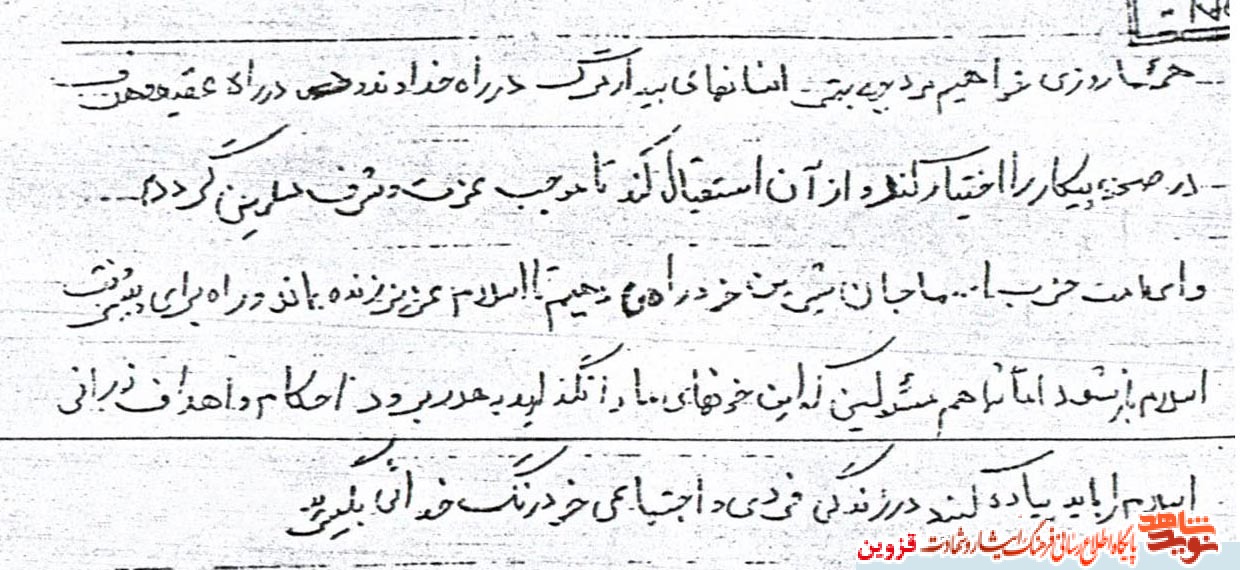 همۀ ما روزی خواهیم مرد پس بیتی انسانهای بیدار مرگ در راه خداوند و در راه عقیده و هدف
در صحنه پیکار را اختیار کنند و از آن استقبال کند تا موجب عزت و شرف مسلمین گردد
و ای امت حزب ا... ما جان شیرین خود را می دهیم تا اسلام عزیز زنده بماند و راه برای پیشرفت
اسلام باز شود اما شما هم مسئولین که این خونهای ما را نگذارید به هدر برود احکام و اهداف نورانی
اسلام را باید پیاده کنید در زندگی فردی و اجتماعی خود رنگ خدائی بگیرید
نوید شاهد
پایگاه اطلاع رسانی فرهنگ ایثار و شهادت قزوین